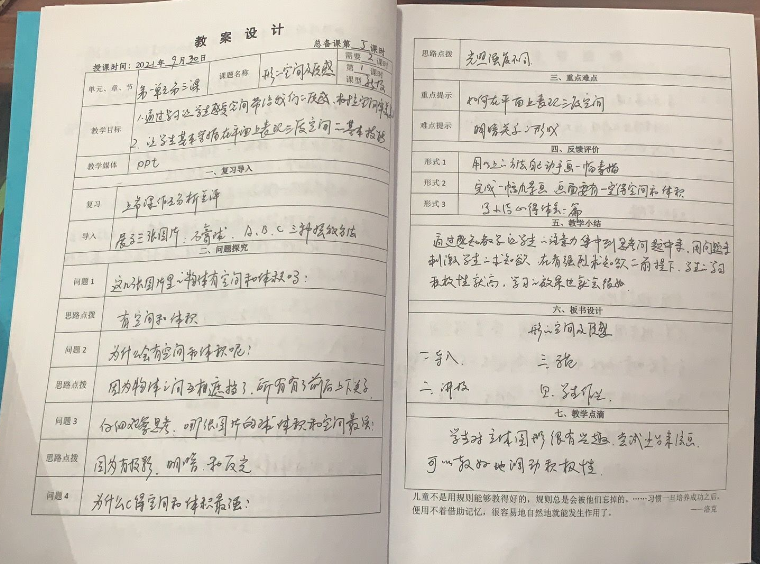 教 案 设 计
总备课第 5 课时
授课时间: 2021年9月30日
需要 2 课时
第 1 课时
单元、章、节 第一单元第三课
课题名称 形的空间及质感
课型
教学目标
1.通过学习让学生感受空间带给我们的质感
2. 让学生基本掌握在平面上表现三度空间的基本技法
教学媒体 ppt
一、复习导入
复习 上节课作业分析互评
导入 展示三张图片,石膏球,A、B、C三种摆放方法
二、问题探究
问题 1 这几张图片里的物体有空间和体积吗?
思路点拨 有空间和体积
问题 2 为什么会有空间和体积呢?
思路点拨 因为物体之间互相遮挡了,所有有了前后上下关系
问题 3 仔细观察思考,哪张图片的球体积和空间最强?
思路点拨 因为有投影,明暗,和反光
问题 4 为什么C得空间和体积最强?
思路点拨 光照强度不同
三、重点难点
重点提示 如何在平面上表现三度空间
难点提示 明暗关系的形成
四、反馈评价
形式 1 用以上方法自己动手画一幅素描
形式 2 完成一幅风景画 画面要有一定得空间和体积
形式 3 写小结心得体会一篇
五、教学小结
通过感知教学让学生的注意力集中到思考问题中来,用问题去
刺激学生的求知欲,在有强烈求知欲的前提下,学生的学习
积极性较高,学习的效果也就会很好
六、板书设计
形的空间及质感
一.导入 三.示范
二、讲授 四.学生作业
七、教学点滴
学生对立体图形很有兴趣,尝试上台来该画,
可以较好地调动积极性.
儿童不是用规则能够教得好的,规则总是会被他们忘掉的。……习惯一旦培养成功之后,
便用不着借助记忆,很容易地自然地就能发生作用了。
——洛克